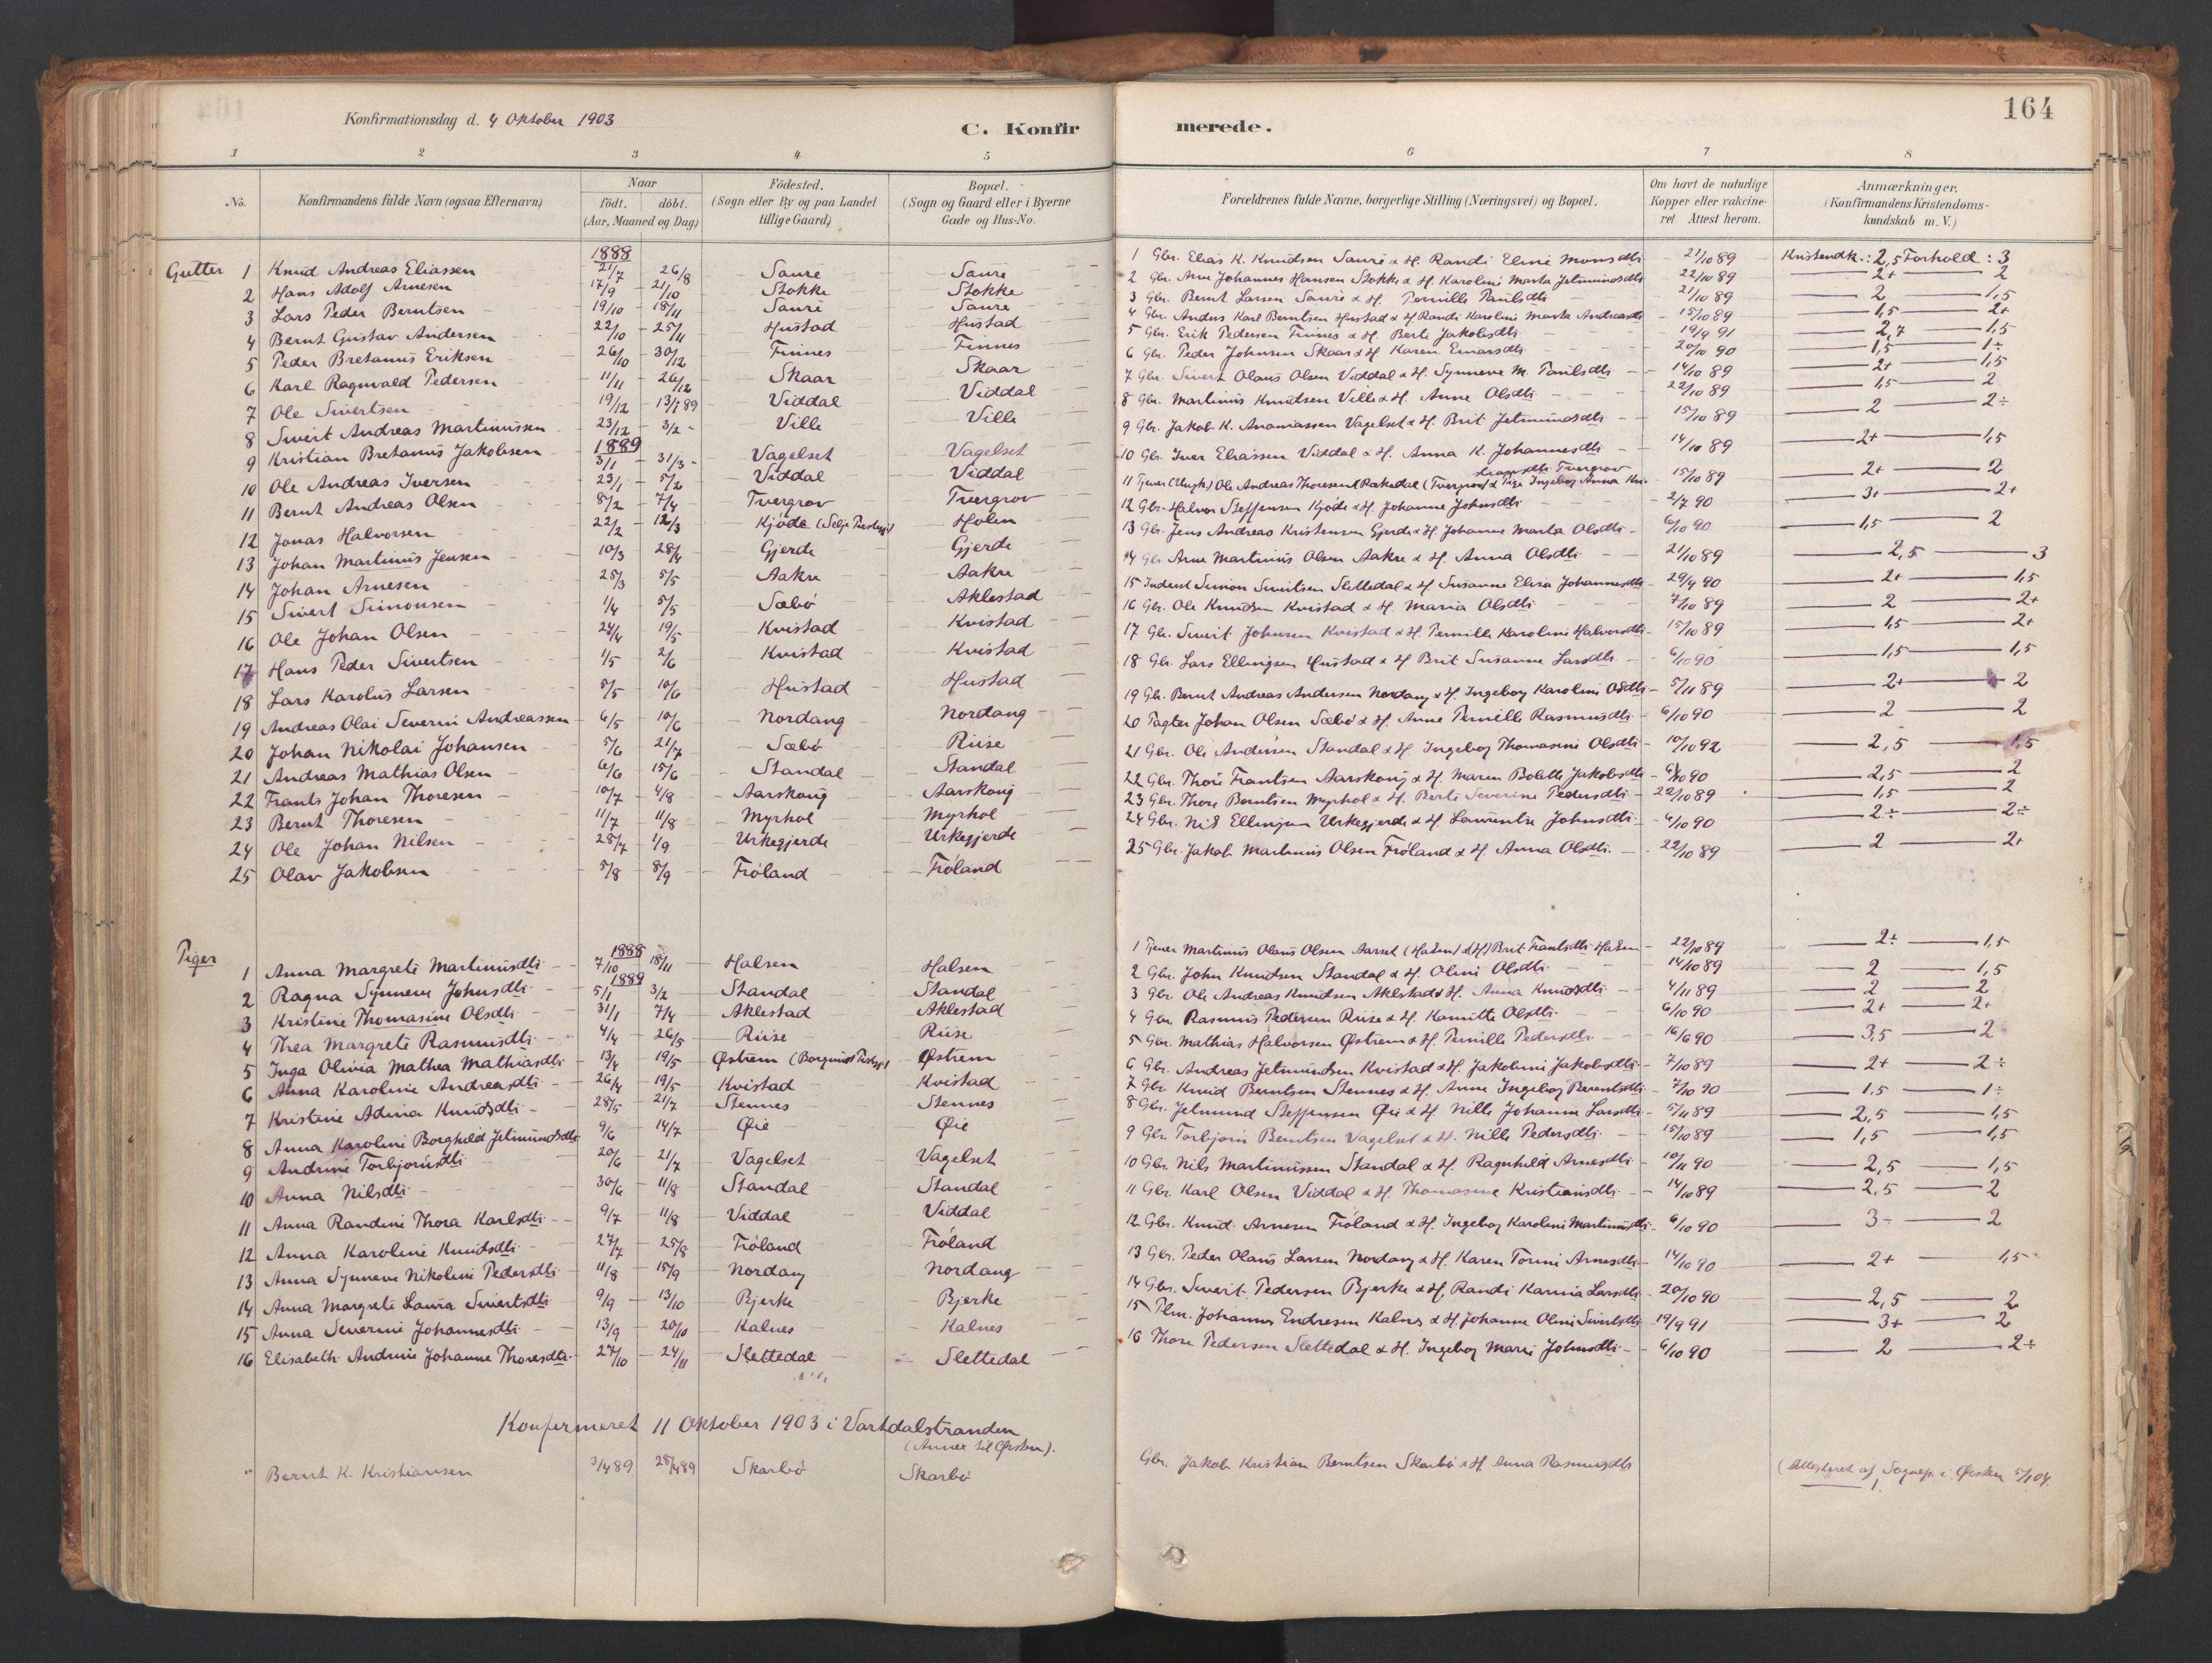 164
Konfirmationsdag d. 4 Oktober 1903
C. Konfirmerede.
1 2 3 4 5 6 7 8
No. Konfirmandens fulde Navn (ogsaa Efternavn) Naar födt. döbt. (Aar, Maaned og Dag) Födested. (Sogn eller By og paa Landet tillige Gaard) Bopæl. (Sogn og Gaard eller i Byerne Gade og Hus-No. Forældrenes fulde Navne, borgerlige Stilling (Næringsvei) og Bopæl. Om havt de naturlige Kopper eller vakcineret. Attest herom. Anmærkninger. (Konfirmandens Kristendomskundskab m. V.)
1888
Gutter 1 Knud Andreas Eliassen 21/7 26/8 Saure Saure 1 Gbr. Elias K. Knudsen Saure & H. Randi Eline Monsdtr 21/10 89 Kristendk.: 2,5 Forhold: 3
2 Hans Adolf Arnesen 17/9 21/10 Stokke Stokke 2 Gbr. Arne Johannes Hansen Stokke & H. Karoline Marta Jetmundsdtr 22/10 89 2+ 2
3 Lars Peder Berntsen 19/10 18/11 Saure Saure 3 Gbr. Bernt Larsen Saure & H. Pernille Paulsdtr 21/10 89 2 1,5
4 Bernt Gustav Andersen 22/10 25/11 Hustad Hustad 4 Gbr. Anders Karl Berntsen Hustad & H. Randi Karoline Marta Andreasdtr 15/10 89 1,5 2+
5 Peder Bretanus Eriksen 26/10 30/12 Finnes Finnes 5 Gbr. Erik Pedersen Finnes & H. Berte Jakobsdtr 19/9 91 2,7 1,5
6 Karl Ragnvald Pedersen 11/11 26/12 Skaar Skaar 6 Gbr. Peder Johnsen Skaar & H. Karen Einarsdtr 20/10 90 1,5 1÷
7 Ole Sivertsen 19/12 13/1 89 Viddal Viddal 7 Gbr. Sivert Olaus Olsen Viddal & H. Synneve M. Paulsdtr 14/10 89 2+ 1,5
8 Sivert Andreas Martinussen 23/12 3/2 Ville Ville 8 Gbr. Martinus Knudsen Ville & H. Anne Olsdtr 22/10 89 1,5 2
1889
9 Kristian Bretanus Jakobsen 3/1 31/3 Vagelset Vagelset 9 Gbr. Jakob K. Ananiassen Vagelset & H. Brit Jetmundsdtr 15/10 89 2 2÷
10 Ole Andreas Iversen 23/1 5/2 Viddal Viddal 10 Gbr. Iver Eliassen Viddal & H. Anna K. Johannesdtr 14/10 89 2+ 1,5
11 Bernt Andreas Olsen 8/2 7/4 Tvergrov Tvergrov 11 Tjener (Ungk.) Ole Andreas Thoresen Rakedal (Tvergrov) & Pige Ingeborg Anna Kristiansdtr Tvergrov 15/10 89 2+ 2
12 Jonas Halvorsen 22/2 12/3 Kjöde (Selje Prestegj) Holen 12 Gbr. Halvor Steffensen Kjöde & H. Johanne Johnsdtr 2/7 90 3+ 2+
13 Johan Martinus Jensen 10/3 28/4 Gjerde Gjerde 13 Gbr. Jens Andreas Kristensen Gjerde & H. Johanne Marta Olsdtr 6/10 90 1,5 2
14 Johan Arnesen 25/3 5/5 Aakre Aakre 14 Gbr Arne Martinus Olsen Aakre & H. Anna Olsdtr 21/10 89 2,5 3
15 Sivert Simonsen 1/4 5/5 Sæbö Aklestad 15 Inderst Simon Sivertsen Slettedal & H. Susanne Elisa Johannesdtr 29/9 90 2+ 1,5
16 Ole Johan Olsen 24/4 19/5 Kvistad Kvistad 16 Gbr. Ole Knudsen Kvistad & H. Maria Olsdtr 7/10 89 2 2+
17 Hans Peder Sivertsen 1/5 2/6 Kvistad Kvistad 17 Gbr. Sivert Johnsen Kvistad & H. Pernille Karoline Halvorsdtr 15/10 89 1,5 2+
18 Lars Karolus Larsen 5/5 10/6 Hustad Hustad 18 Gbr. Lars Ellingsen Hustad & H Brit Susanne Larsdtr 6/10 90 1,5 1,5
19 Andreas Olai Severin Andreassen 6/5 10/6 Nordang Nordang 19 Gbr. Bernt Andreas Andersen Nordang & H. Ingeborg Karoline Olsdtr 5/11 89 2+ 2
20 Johan Nikolai Johansen 5/6 21/7 Sæbö Riise 20 Pagter Johan Olsen Sæbö & H. Anne Pernille Rasmusdtr 6/10 90 2 2
21 Andreas Mathias Olsen 6/6 15/6 Standal Standal 21 Gbr. Ole Andersen Standal & H. Ingeborg Thomasine Olsdtr 10/10 92 2,5 1,5
22 Frants Johan Thoresen 10/7 4/8 Aarskoug Aarskoug 22 Gbr. Thore Frantsen Aarskoug & H. Maren Bolette Jakobsdtr 6/10 90 2,5 2
23 Bernt Thoresen 11/7 11/8 Myrhol Myrhol 23 Gbr. Thore Berntsen Myrhol & H. Berte Severine Pedersdtr 22/10 89 1,5 2
24 Ole Johan Nilsen 28/7 1/9 Urkegjerde Urkegjerde 24 Gbr. Nils Ellingsen Urkegjerde & H. Laurentse Johnsdtr 6/10 90 2÷ 2÷
25 Olav Jakobsen 5/8 8/9 Fröland Fröland 25 Gbr. Jakob Martinus Olsen Fröland & H. Anna Olsdtr. 22/10 89 2 2+
Piger
1888
1 Anna Margrete Martinusdtr 7/10 18/11 Halsen Halsen 1 Tjener Martinus Olaus Olsen Aarset (Halsen) & (H) Brit Frantsdtr Halsen 22/10 89 2÷ 1,5
1889
2 Ragna Synneve Johnsdtr 5/1 3/2 Standal Standal 2 Gbr. John Knudsen Standal & H. Oline Olsdtr 14/10 89 2 1,5
3 Kristine Thomasine Olsdtr 31/1 7/4 Aklestad Aklestad 3 Gbr Ole Andreas Knudsen Aklestad & H. Anna Knudsdtr 4/11 89 2 2
4 Thea Margrete Rasmusdtr 4/4 26/5 Riise Riise 4 Gbr Rasmus Pedersen Riise & H. Hanutte Olsdtr. 6/10 90 2+ 2+
5 Inga Olivia Mathea Mathiasdtr 13/4 19/5 Østrem (Borgund Prestegj) Østrem 5 Gbr. Mathias Halvorsen Østrem & H. Pernille Pedersdtr 16/6 90 3,5 2
6 Anna Karoline Andreasdtr 26/4 19/5 Kvistad Kvistad 6 Gbr. Andreas Jetmundsen Kvistad & H. Jakobine Jakobsdtr 7/10 89 2+ 2÷
7 Kristine Adina Knudsdtr 28/5 21/7 Stennes Stennes 7 Gbr Knud Berntsen Stennes & H. Anne Ingeborg Berentsdtr 7/10 90 1,5 1÷
8 Anna Karoline Borghild Jetmundsdtr 9/6 14/7 Øie Øie 8 Gbr. Jetmund Steffensen Øie & H. Nille Johanne Larsdtr 5/11 89 2,5 1,5
9 Andrine Torbjornsdtr 20/6 21/7 Vagelset Vagelset 9 Gbr Torbjorn Berntsen Vagelset & H. Nille Pedersdtr 15/10 89 1,5 1,5
10 Anna Nilsdtr 30/6 11/8 Standal Standal 10 Gbr Nils Martinussen Standal & H. Ragnhild Arnesdtr 10/11 90 2,5 1,5
11 Anna Randine Thora Karlsdtr 9/7 11/8 Viddal Viddal 11 Gbr. Karl Olsen Viddal & H. Thomasine Kristiansdtr 14/10 89 2,5 2
12 Anna Karoline Knudsdtr 27/7 25/8 Fröland Fröland 12 Gbr. Knud Arnesen Fröland & H. Ingeborg Karoline Martinusdtr 6/10 90 3÷ 2
13 Anna Synneve Nikoline Pedersdtr 11/8 15/9 Nordang Nordang 13 Gbr. Peder Olaus Larsen Nordang & H. Karen Torine Arnesdtr 14/10 90 2+ 1,5
14 Anna Margrete Laura Sivertsdtr 9/9 13/10 Bjerke Bjerke 14 Gbr. Sivert Pedersen Bjerke & H. Randi Karina Larsdtr 20/10 90 2,5 2
15 Anna Severine Johannesdtr 13/9 20/10 Kalnes Kalnes 15 Plm. Johannes Endresen Kalnes & H. Johanne Oline Sivertsdtr 19/9 91 3+ 2
16 Elisabeth Andrine Johanne Thoresdtr 27/10 24/11 Slettedal Slettedal 16 Thore Pedersen Slettedal & H. Ingeborg Marie Johnsdtr 6/10 90 2 2÷
Konfirmeret 11 Oktober 1903 i Vartdalstranden
(Annex til Ørsten).
Bernt K. Kristiansen 3/4 89 28/4 89 Skarbö Skarbö Gbr Jakob Kristian Berntsen Skarbö & H. Anna Rasmusdtr (Attesteret af Sognepr. i Ørsten 5/1 04.